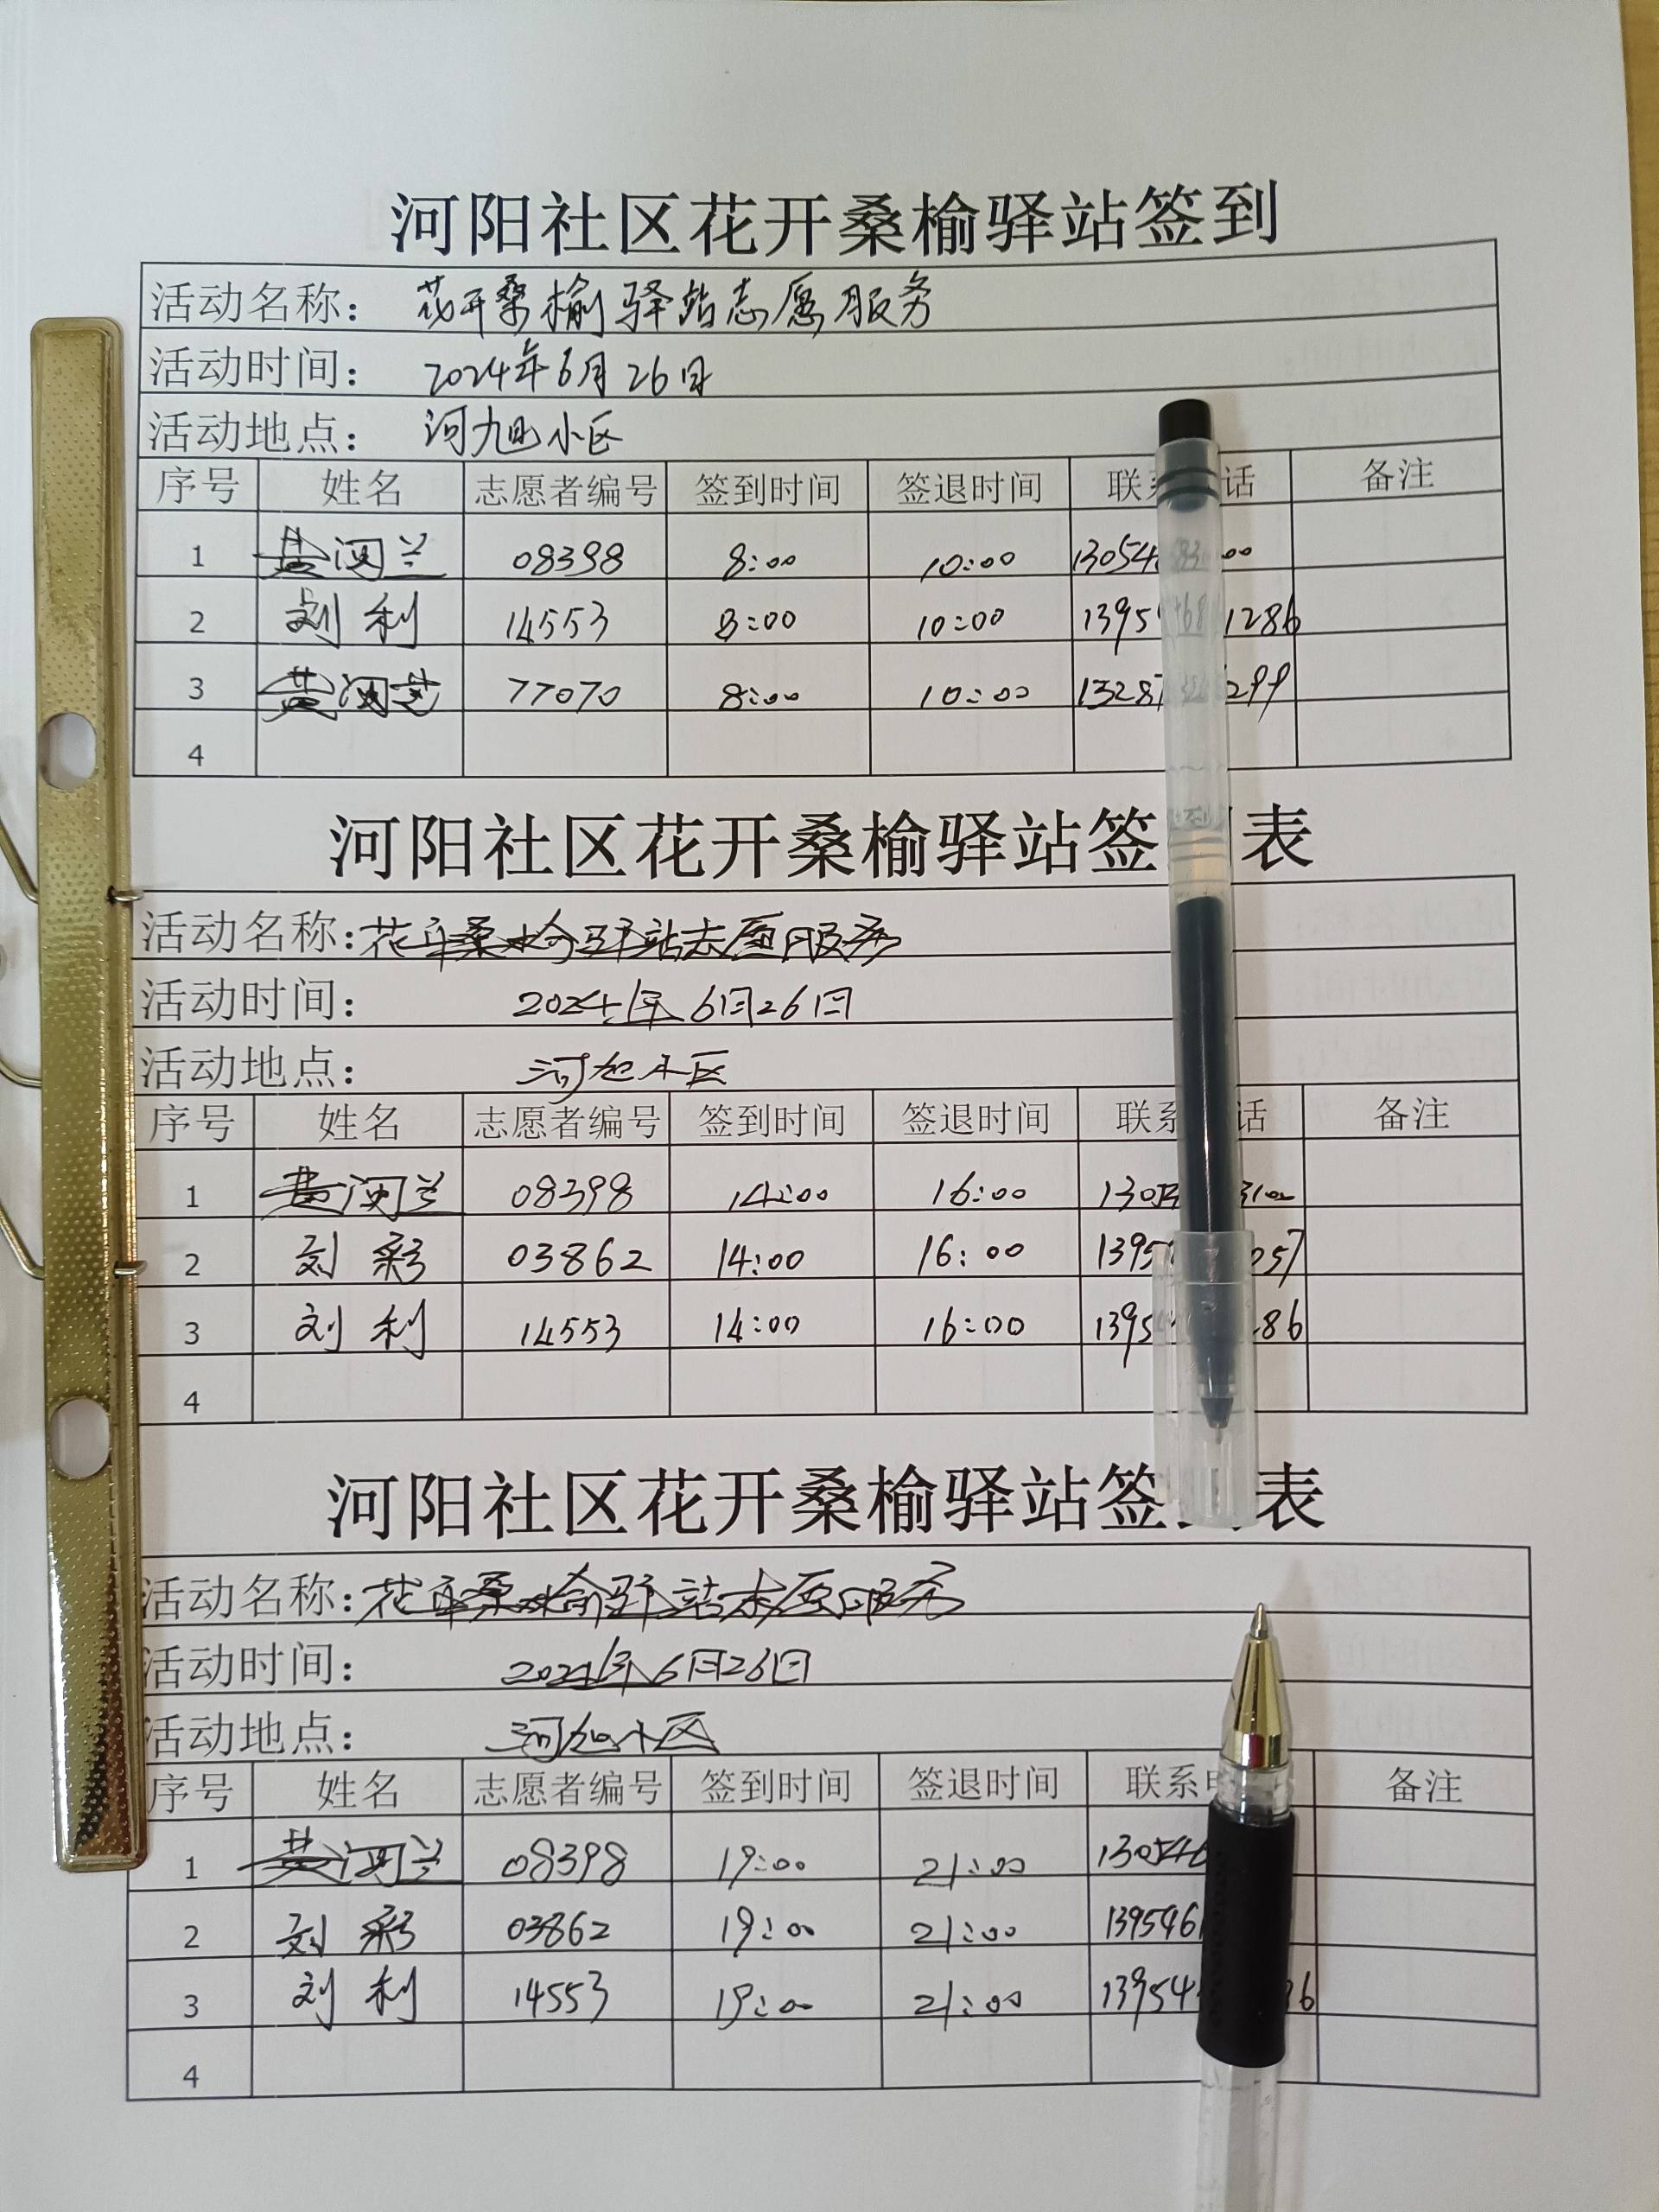 河阳社区花开桑榆驿站签到
活动名称： 花开桑榆驿站志愿服务
活动时间： 2024年6月26日
活动地点： 河旭小区
序号 姓名 志愿者编号 签到时间 签退时间 联系 话 备注
1 黄河兰 08398 8:00 10:00 13054 00
2 刘利 14553 8:00 10:00 1395 1286
3 黄河芝 77070 8:00 10:00 1328 299
4
河阳社区花开桑榆驿站签 表
活动名称:花开桑榆驿站志愿服务
活动时间： 2024年6月26日
活动地点： 河旭小区
序号 姓名 志愿者编号 签到时间 签退时间 联系 话 备注
1 黄河兰 08398 14:00 16:00 130 3100
2 刘彩 03862 14:00 16:00 1395 057
3 刘利 14553 14:00 16:00 1395 286
4
河阳社区花开桑榆驿站签 表
活动名称:花开桑榆驿站志愿服务
活动时间： 2024年6月26日
活动地点： 河旭小区
序号 姓名 志愿者编号 签到时间 签退时间 联系 备注
1 黄河兰 08398 19:00 21:00 130546
2 刘彩 03862 19:00 21:00 139546
3 刘利 14553 19:00 21:00 13954 6
4